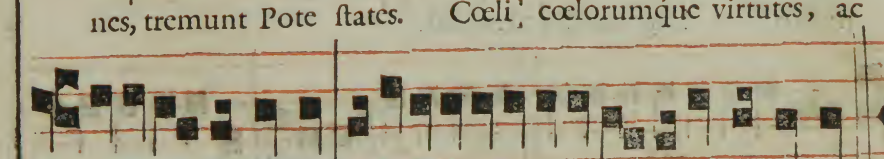 nes, tremunt Pote ſtates. Cœli, cœlorumque virtutes, ac